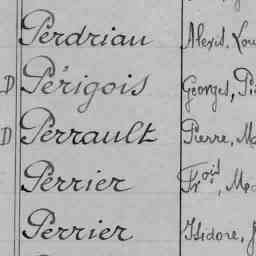 Perdrian Alexis, Lou
D Périgois Georges, Pi
D Perrault Pierre, Ma
Perrier Fr.ois, Med
Perrier Isidore, J